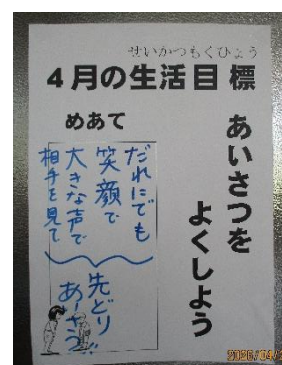 せいかつもくひょう
4月の生活目標
あいさつを
よくしよう
めあて
だれにでも
笑顔で
大きな声で
相手を見て
先どり